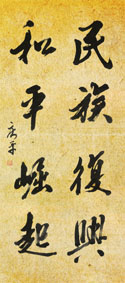 民族復興
和平崛起